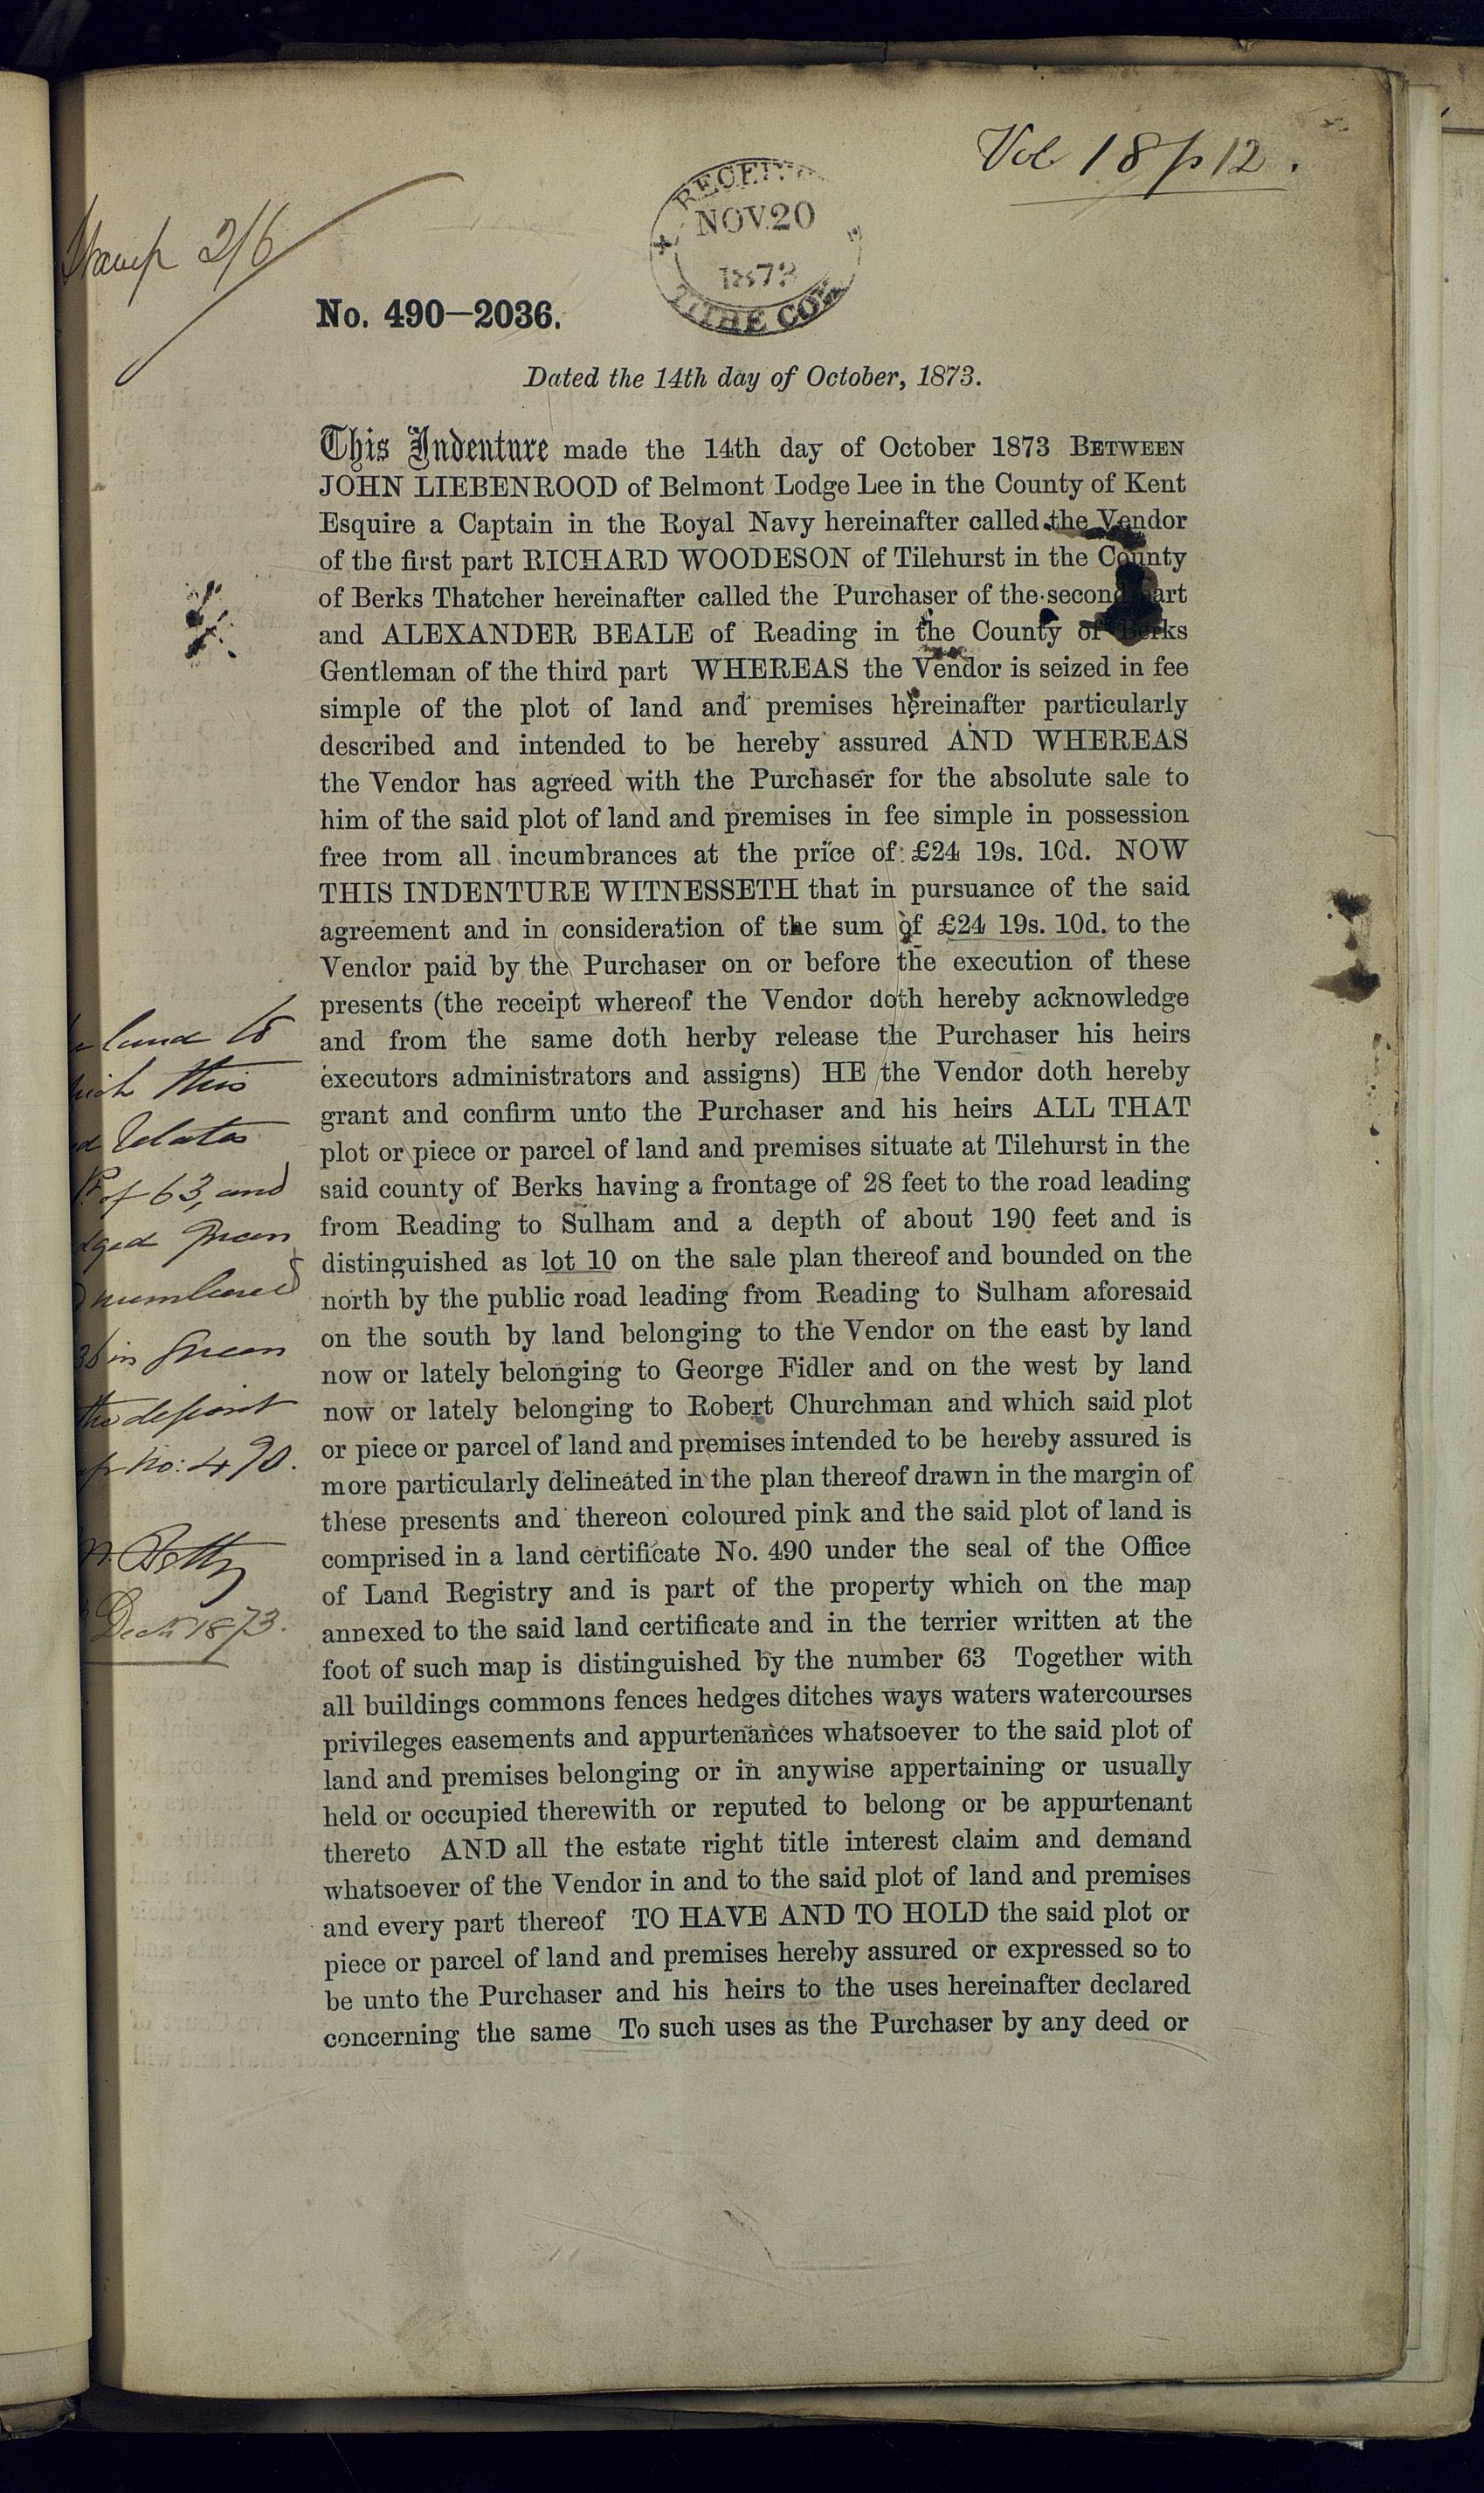 Vol 18 p 12.
Stamp 2/6
RECEIV
NOV. 20
1873
TITHE COM
No. 490—2036.
Dated the 14th day of October, 1873.
This Indenture made the 14th day of October 1873 BETWEEN
JOHN LIEBENROOD of Belmont Lodge Lee in the County of Kent
Esquire a Captain in the Royal Navy hereinafter called the Vendor
of the first part RICHARD WOODESON of Tilehurst in the County
of Berks Thatcher hereinafter called the Purchaser of the second part
and ALEXANDER BEALE of Reading in the County of Berks
Gentleman of the third part WHEREAS the Vendor is seized in fee
simple of the plot of land and premises hereinafter particularly
described and intended to be hereby assured AND WHEREAS
the Vendor has agreed with the Purchaser for the absolute sale to
him of the said plot of land and premises in fee simple in possession
free from all incumbrances at the price of £24 19s. 10d. NOW
THIS INDENTURE WITNESSETH that in pursuance of the said
agreement and in consideration of the sum of £24 19s. 10d. to the
Vendor paid by the Purchaser on or before the execution of these
presents (the receipt whereof the Vendor doth hereby acknowledge
and from the same doth herby release the Purchaser his heirs
executors administrators and assigns) HE the Vendor doth hereby
grant and confirm unto the Purchaser and his heirs ALL THAT
plot or piece or parcel of land and premises situate at Tilehurst in the
said county of Berks having a frontage of 28 feet to the road leading
from Reading to Sulham and a depth of about 190 feet and is
distinguished as lot 10 on the sale plan thereof and bounded on the
north by the public road leading from Reading to Sulham aforesaid
on the south by land belonging to the Vendor on the east by land
now or lately belonging to George Fidler and on the west by land
now or lately belonging to Robert Churchman and which said plot
or piece or parcel of land and premises intended to be hereby assured is
more particularly delineated in the plan thereof drawn in the margin of
these presents and thereon coloured pink and the said plot of land is
comprised in a land certificate No. 490 under the seal of the Office
of Land Registry and is part of the property which on the map
annexed to the said land certificate and in the terrier written at the
foot of such map is distinguished by the number 63 Together with
all buildings commons fences hedges ditches ways waters watercourses
privileges easements and appurtenances whatsoever to the said plot of
land and premises belonging or in anywise appertaining or usually
held or occupied therewith or reputed to belong or be appurtenant
thereto AND all the estate right title interest claim and demand
whatsoever of the Vendor in and to the said plot of land and premises
and every part thereof TO HAVE AND TO HOLD the said plot or
piece or parcel of land and premises hereby assured or expressed so to
be unto the Purchaser and his heirs to the uses hereinafter declared
concerning the same To such uses as the Purchaser by any deed or
land to
this
relates
of 63, and
green
numbered
in green
the deposit
No: 490.
Decr 1873.